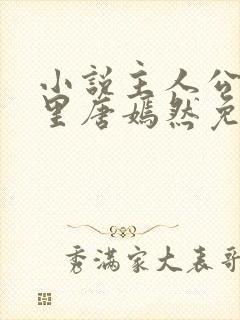 小说主人公
里唐嫣然免
秀满家大表哥